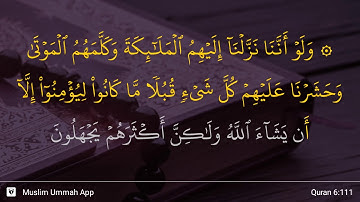 ۞ وَلَوْ أَنَّنَا نَزَّلْنَآ إِلَيْهِمُ ٱلْمَلَـٰٓئِكَةَ وَكَلَّمَهُمُ ٱلْمَوْتَىٰ
وَحَشَرْنَا عَلَيْهِمْ كُلَّ شَىْءٍ قُبُلًا مَّا كَانُوا۟ لِيُؤْمِنُوٓا۟ إِلَّآ
أَن يَشَآءَ ٱللَّهُ وَلَـٰكِنَّ أَكْثَرَهُمْ يَجْهَلُونَ
Muslim Ummah App
Quran 6:111